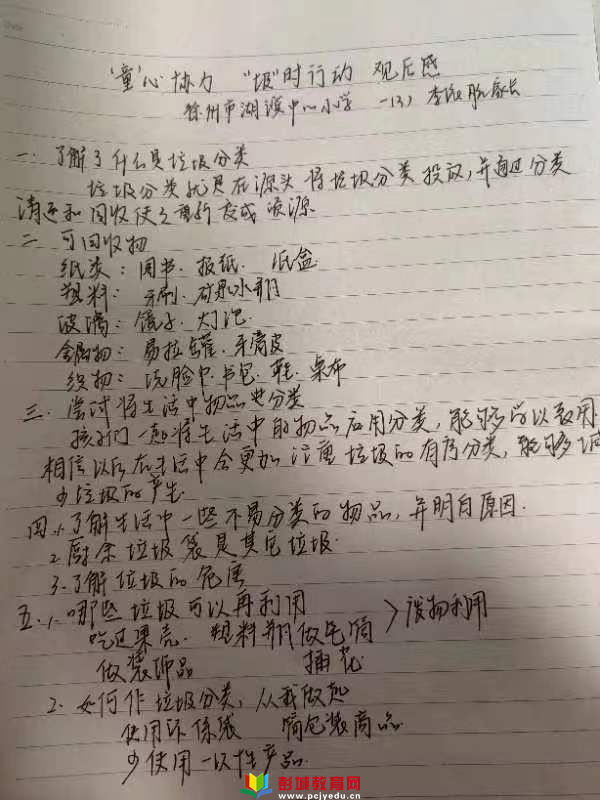 '童'心协力 "圾"时行动 观后感
徐州市湖滨中心小学 一(3) 李 家长
一. 了解了什么是垃圾分类
垃圾分类就是在源头将垃圾分类投放,并通过分类
清运和回收使之重新变成资源
二 可回收物
纸类:图书. 报纸. 纸盒
塑料: 牙刷. 矿泉水瓶
玻璃:镜子. 灯泡.
金属物: 易拉罐. 牙膏皮
织物: 洗脸巾. 书包. 鞋. 桌布
三. 尝试将生活中物品 分类
孩子们一起将生活中的物品 用分类, 能够学以致用
相信以后在生活中会更加注重垃圾的有序分类, 能够减
少垃圾的产生
四.1.了解生活中一些不易分类的物品, 并明白原因.
2.厨余垃圾袋是其它垃圾.
3.了解垃圾的危害
五.1.哪些垃圾可以再利用
吃过果壳. 塑料瓶做笔筒 > 废物利用
做装饰品 插花
2. 如何作垃圾分类, 从我做起
使用环保袋 简包装商品
少使用一次性产品.
彭城教育网
www.pcjyedu.cn